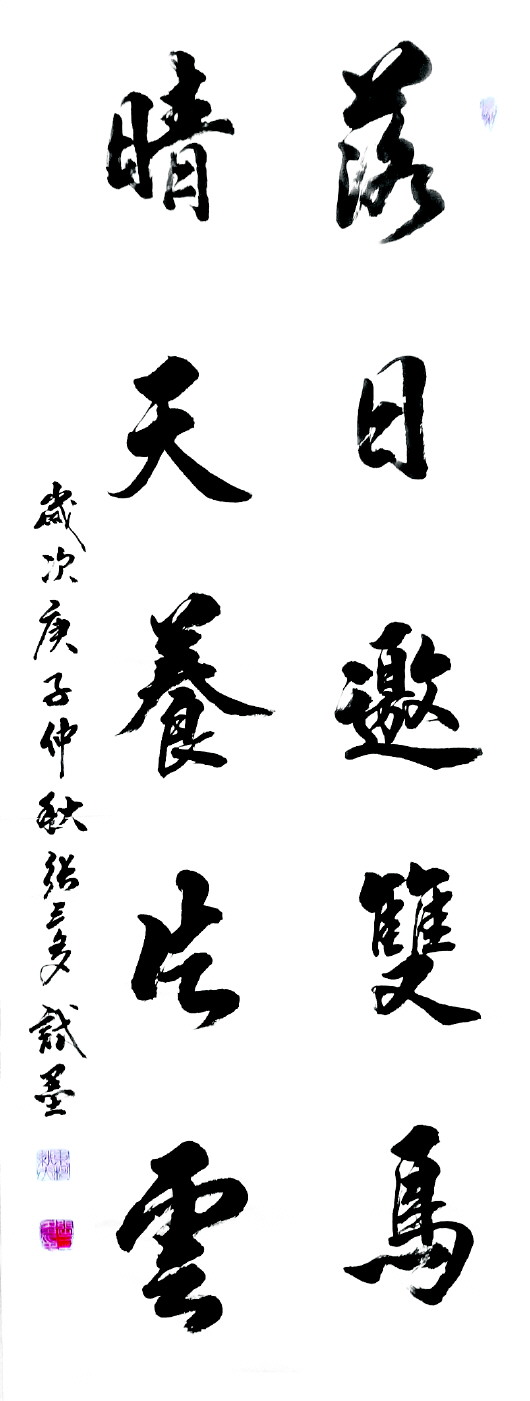 落日邀雙鳥
晴天養片雲
歲次庚子仲秋張三多試墨